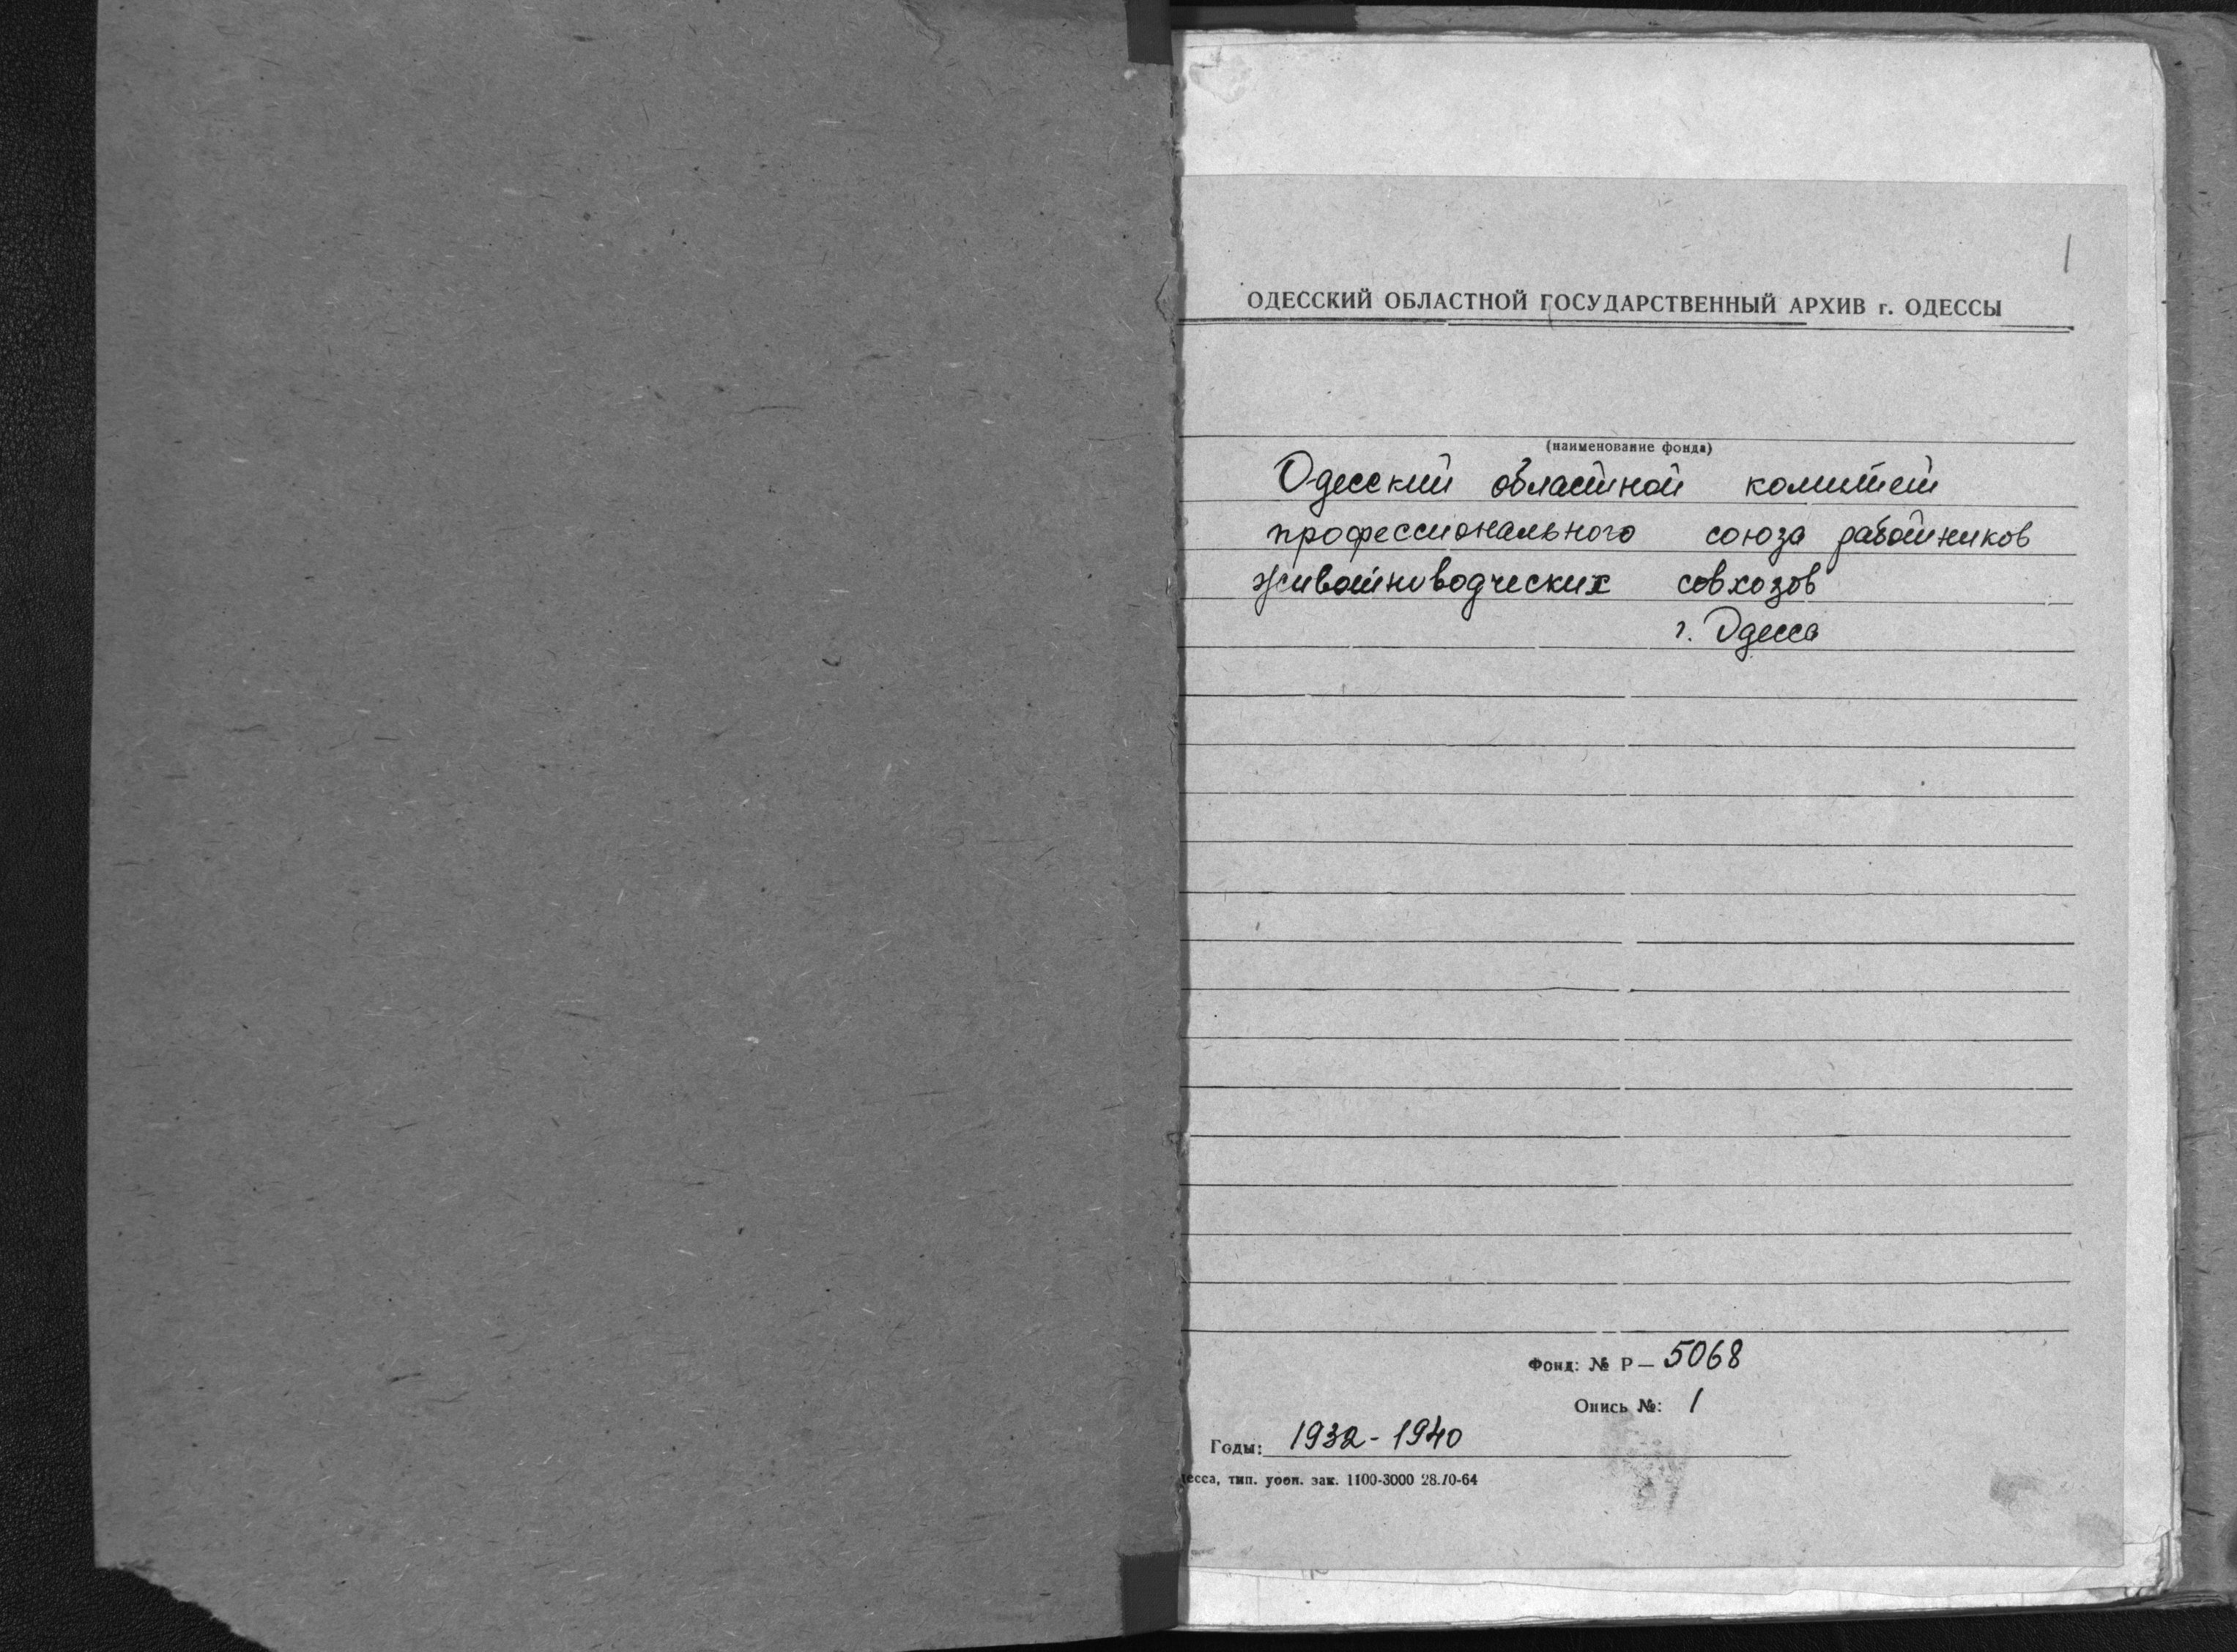 1
ОДЕССКИЙ ОБЛАСТНОЙ ГОСУДАРСТВЕННЫЙ АРХИВ г. ОДЕССЫ
(наименование фонда)
Одесский областной комитет
профессионального союза работников
животноводческих совхозов
г. Одесса
Фонд: № Р— 5068
Опись №: 1
Годы: 1932-1940
десса, тип. зак. 1100-3000 28.10-64